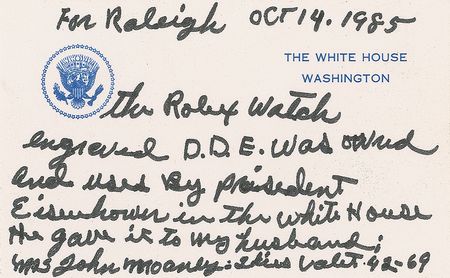 For Raleigh OCT 14. 1985
THE WHITE HOUSE
WASHINGTON
the Rolex Watch
engraved D.D.E. was owned
and used By president
Eisenhower in the white House
He gave it to my husband;
Mrs John Moaney: Ikes Valet. 42-69